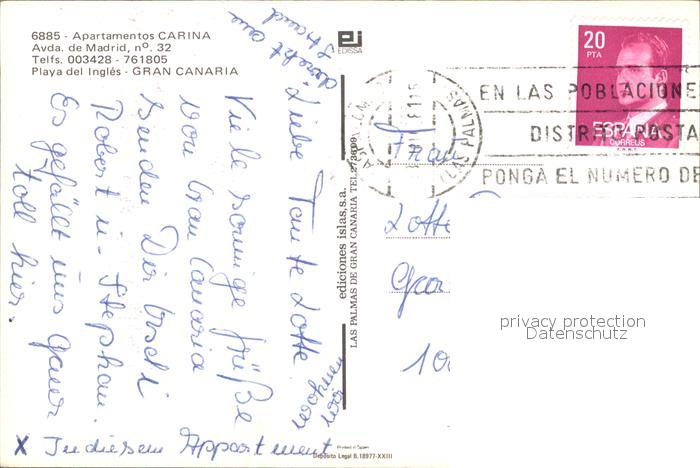 6885 - Apartamentos CARINA
Avda. de Madrid, nº. 32
Telfs. 003428 - 761805
Playa del Inglés - GRAN CANARIA
EDISSA
20
PTA
ESPAÑA
CORREUS
EN LAS POBLACIONE
DISTR POSTA
PONGA EL NUMERO DE
LAS PALMAS
direkt am
Strand
Liebe Tante Lotte.
Viele sonnige Grüße
von Gran Canaria
senden Dir Uschi
Robert u. Stephan.
Es gefällt uns ganz
toll hier.
X In diesem Appartment
wohnen
wir
ediciones islas, s.a.
LAS PALMAS DE GRAN CANARIA TEL.
Printed in Spain
Depósito Legal B. 18977-XXIII
Frau
Lotte
privacy protection
Datenschutz